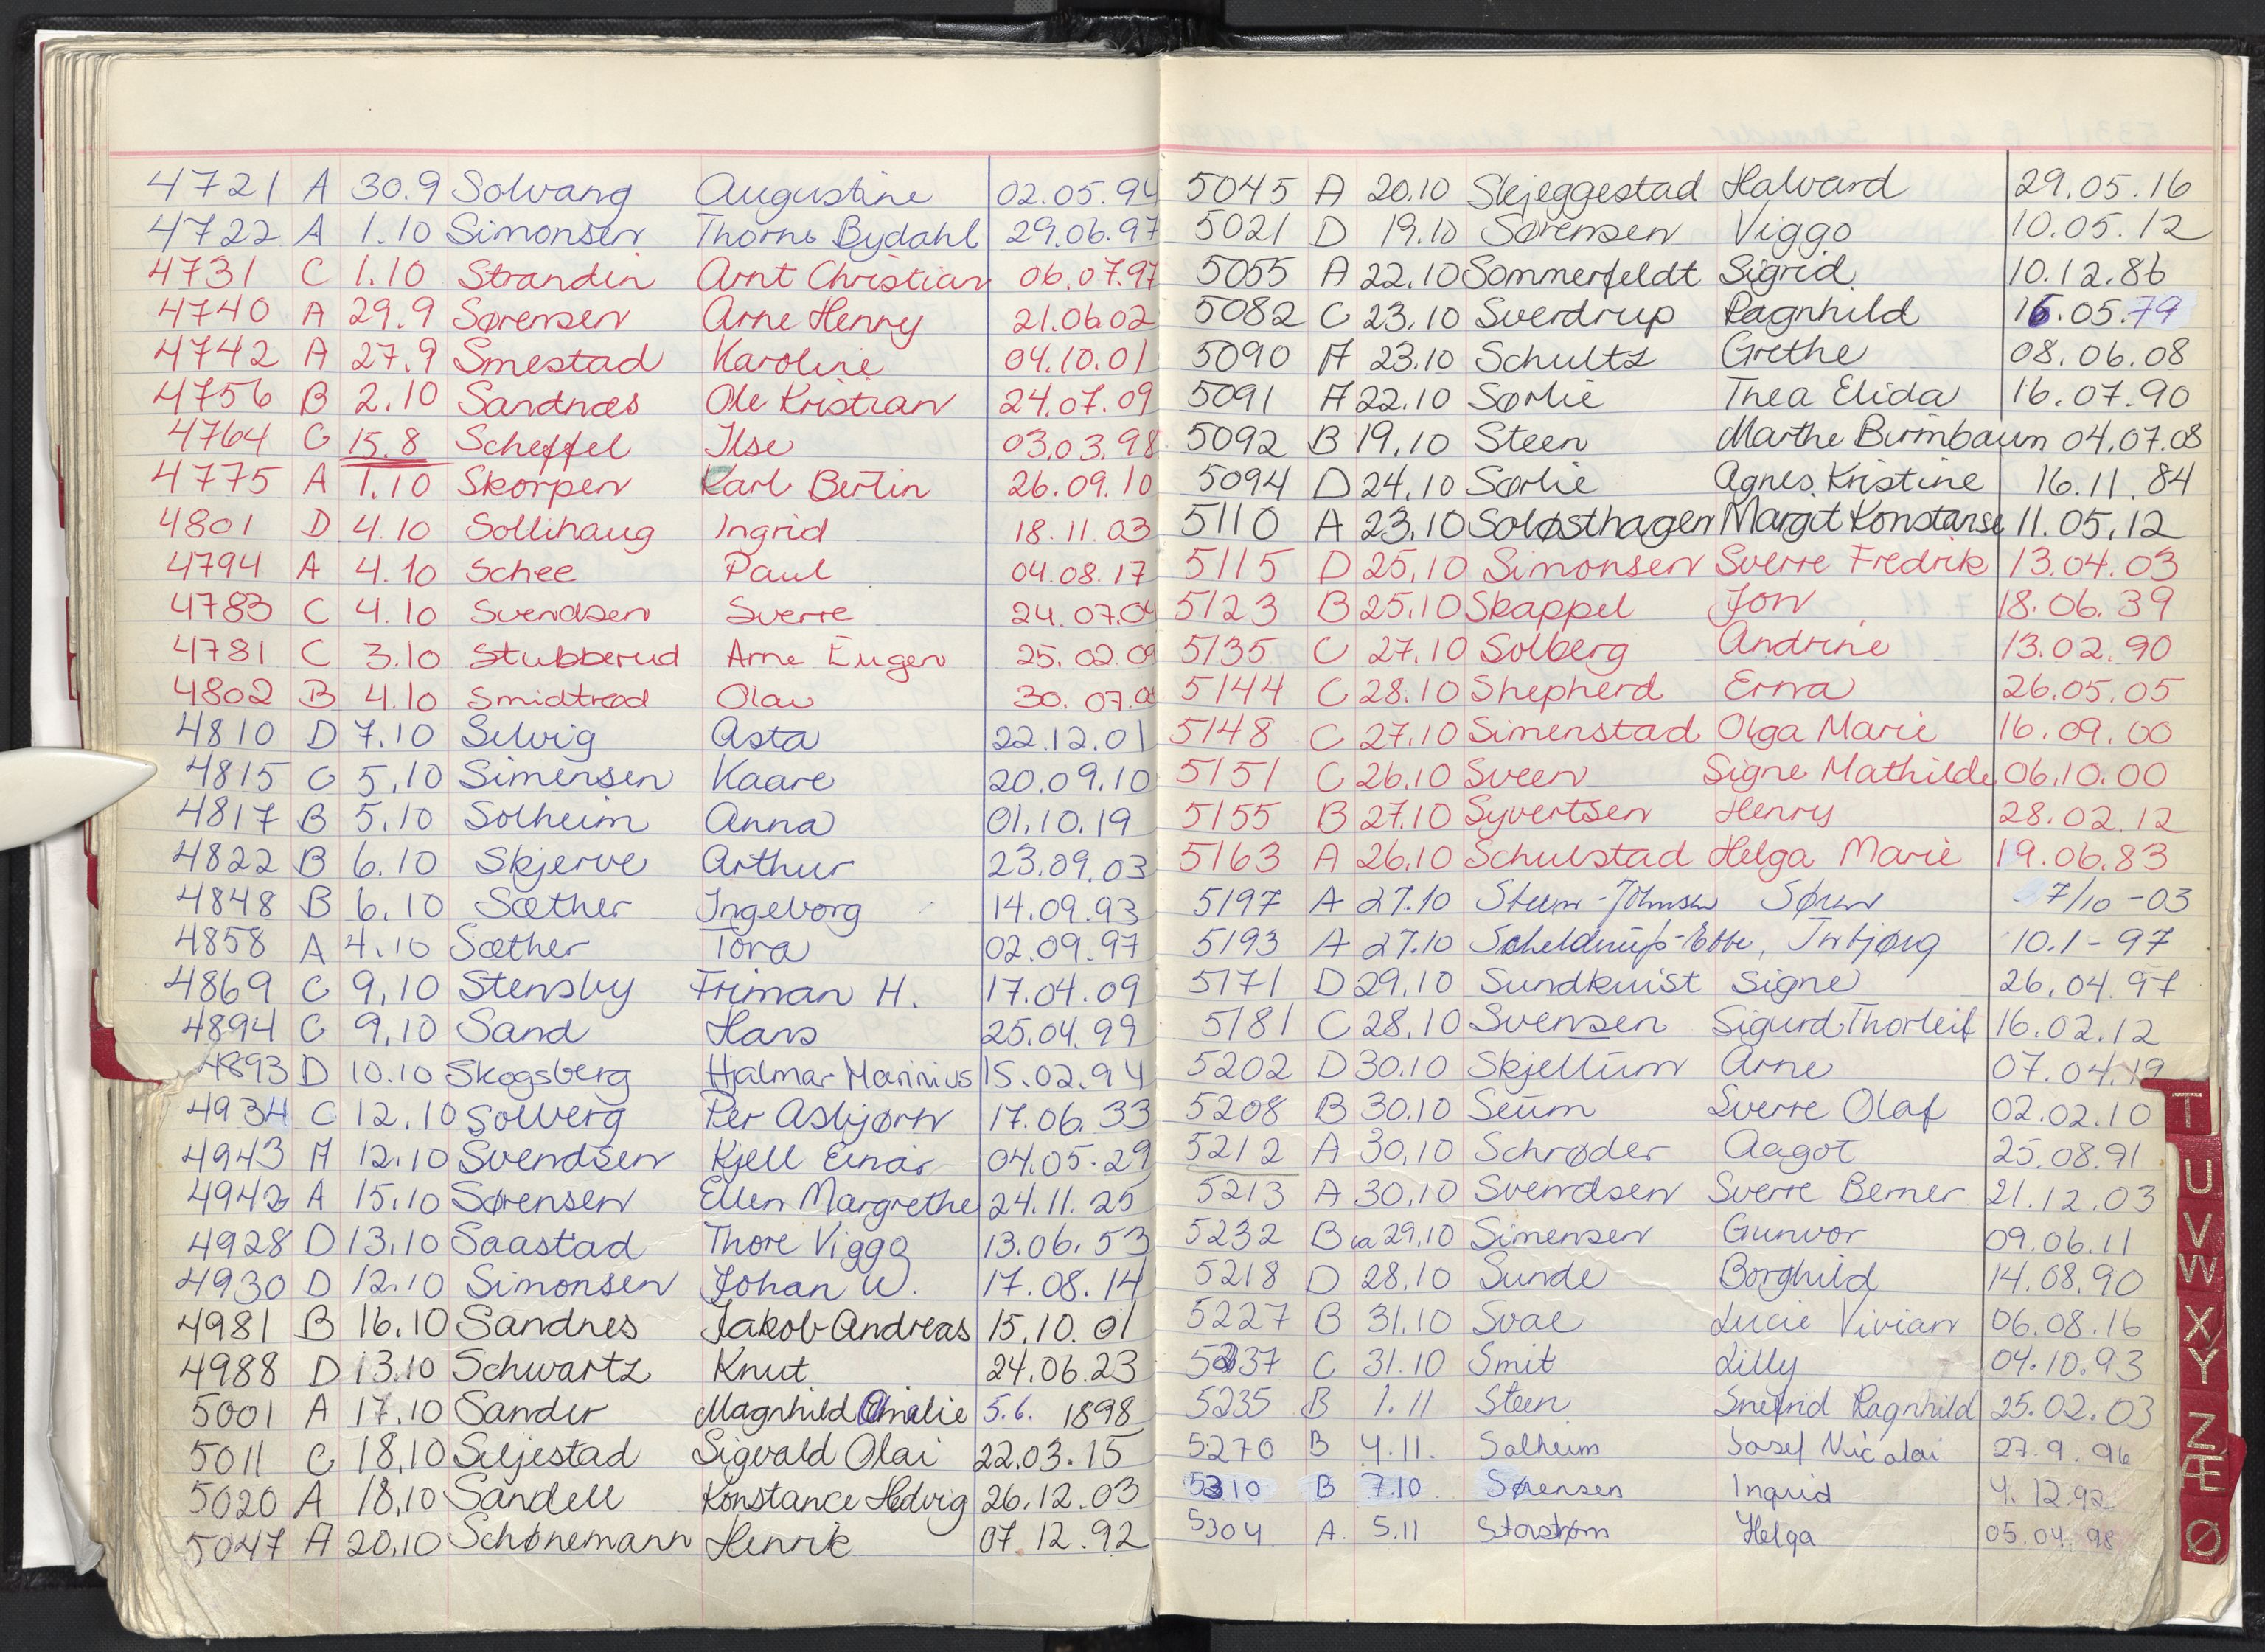 4721 A 30.9 Solvang Augustine 02.05.94
4722 A 1.10 Simonsen Thorne Bydahl 29.06.97
4731 C 1.10 Strandin Arnt Christian 06.07.97
4740 A 29.9 Sørensen Arne Henry 21.06.02
4742 A 27.9 Smestad Karoline 04.10.01
4756 B 2.10 Sandnæs Ole Kristian 24.07.09
4764 C 15.8 Scheffel Ilse 03.03.98
4775 A 1.10 Skorpen Karl Bertin 26.09.10
4801 D 4.10 Sollihaug Ingrid 18.11.03
4794 A 4.10 Schee Paul 04.08.17
4783 C 4.10 Svendsen Sverre 24.07.04
4781 C 3.10 Stubberud Arne Eugen 25.02.09
4802 B 4.10 Smidtrød Olav 30.07.
4810 D 7.10 Selvig Asta 22.12.01
4815 C 5.10 Simensen Kaare 20.09.10
4817 B 5.10 Solheim Anna 01.10.19
4822 B 6.10 Skjerve Arthur 23.09.03
4848 B 6.10 Sæther Ingeborg 14.09.93
4858 A 4.10 Sæther Tora 02.09.97
4869 C 9.10 Stensby Friman H. 17.04.09
4894 C 9.10 Sand Hans 25.04.99
4893 D 10.10 Skogsberg Hjalmar Marinius 15.02.94
4934 C 12.10 Solberg Per Asbjørn 17.06.33
4943 A 12.10 Svendsen Kjell Einar 04.05.29
4942 A 15.10 Sørensen Ellen Margrethe 24.11.25
4928 D 13.10 Saastad Thore Viggo 13.06.53
4930 D 12.10 Simonsen Johan W. 17.08.14
4981 B 16.10 Sandnes Jakob Andreas 15.10.01
4988 D 13.10 Schwartz Knut 24.06.23
5001 A 17.10 Sander Magnhild Amalie 5.6. 1898
5011 C 18.10 Seljestad Sigvald Olai 22.03.15
5020 A 18.10 Sandell Konstance Hedvig 26.12.03
5047 A 20.10 Schønemann Henrik 07.12.92
5045 A 20.10 Skjeggestad Halvard 29.05.16
5021 D 19.10 Sørensen Viggo 10.05.12
5055 A 22.10 Sommerfeldt Sigrid 10.12.86
5082 C 23.10 Sverdrup Ragnhild 16.05.79
5090 A 23.10 Schultz Grethe 08.06.08
5091 A 22.10 Sørlie Thea Elida 16.07.90
5092 B 19.10 Steen Marthe Birmbaum 04.07.08
5094 D 24.10 Sørlie Agnes Kristine 16.11.84
5110 A 23.10 Soløsthagen Margit Konstanse 11.05.12
5115 D 25.10 Simonsen Sverre Fredrik 13.04.03
5123 B 25.10 Skappel Jon 18.06.39
5135 C 27.10 Solberg Andrine 13.02.90
5144 C 28.10 Shepherd Erna 26.05.05
5148 C 27.10 Simenstad Olga Marie 16.09.00
5151 C 26.10 Sveen Signe Mathilde 06.10.00
5155 B 27.10 Syvertsen Henry 28.02.12
5163 A 26.10 Schulstad Helga Marie 19.06.83
5197 A 27.10 Steen-Johnsen Søren 7/10-03
5193 A 27.10 Schelderup-Ebbe, Torbjørg 10.1-97
5171 D 29.10 Sundkvist Signe 26.04.97
5181 C 28.10 Svensen Sigurd Thorleif 16.02.12
5202 D 30.10 Skjellum Arne 07.04.19
5208 B 30.10 Seum Sverre Olaf 02.02.10
5212 A 30.10 Schrøder Aagot 25.08.91
5213 A 30.10 Svendsen Sverre Berner 21.12.03
5232 B ca 29.10 Simensen Gunvor 09.06.11
5218 D 28.10 Sunde Borghild 14.08.90
5227 B 31.10 Svae Lucie Vivian 06.08.16
5237 C 31.10 Smit Lilly 04.10.93
5235 B 1.11 Steen Snefrid Ragnhild 25.02.03
5270 B 4.11. Solheim Josef Nicolai 27.9.96
5310 B 7.10 Sørensen Ingrid 4.12.92
5304 A. 5.11 Storstrøm Helga 05.04.98
T
U
V
W
X
Y
Z
Æ
Ø